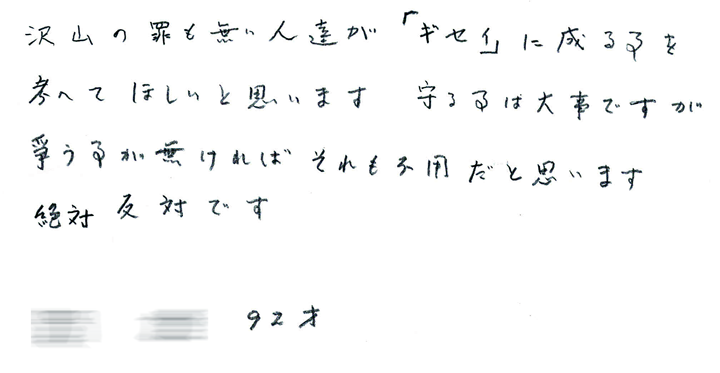 沢山の罪も無い人達が「ギセイ」に成る事を
考へてほしいと思います　守る事は大事ですが
爭う事が無ければそれも不用だと思います
絶対反対です
92才